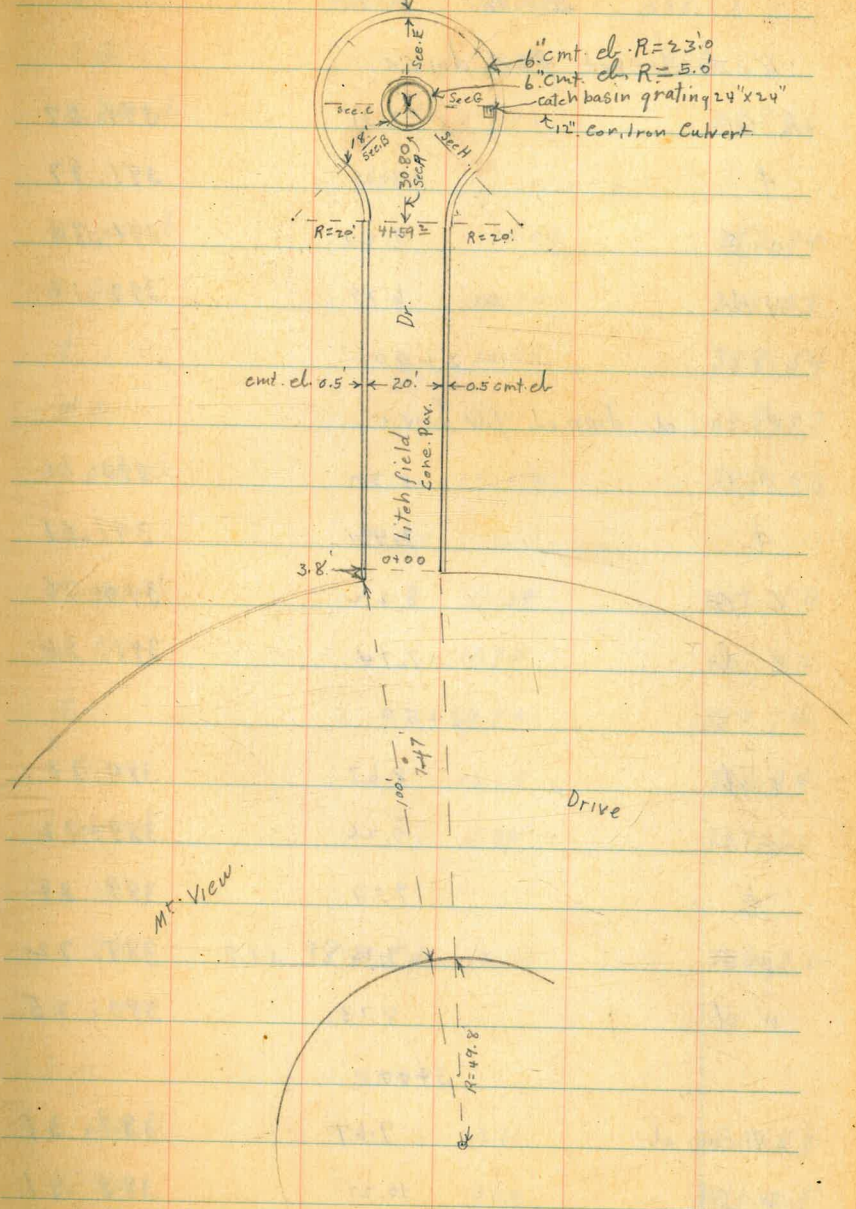 6" cmt. cb. R=23.0'
6" cmt. cb. R=5.0'
catch basin grating 24"x24"
12" Cor. Iron Culvert.
Sec. E
Sec. C
Sec G
18'
Sec. B
30.80
Sec A
Sec H
R=20' 4+59 R=20'
Dr.
cmt. cb. 0.5' 20' 0.5 cmt. cb
Litchfield
Conc. Pav.
3.8' 0+00
100'
7.47
Drive
Mt. View
R=49.8